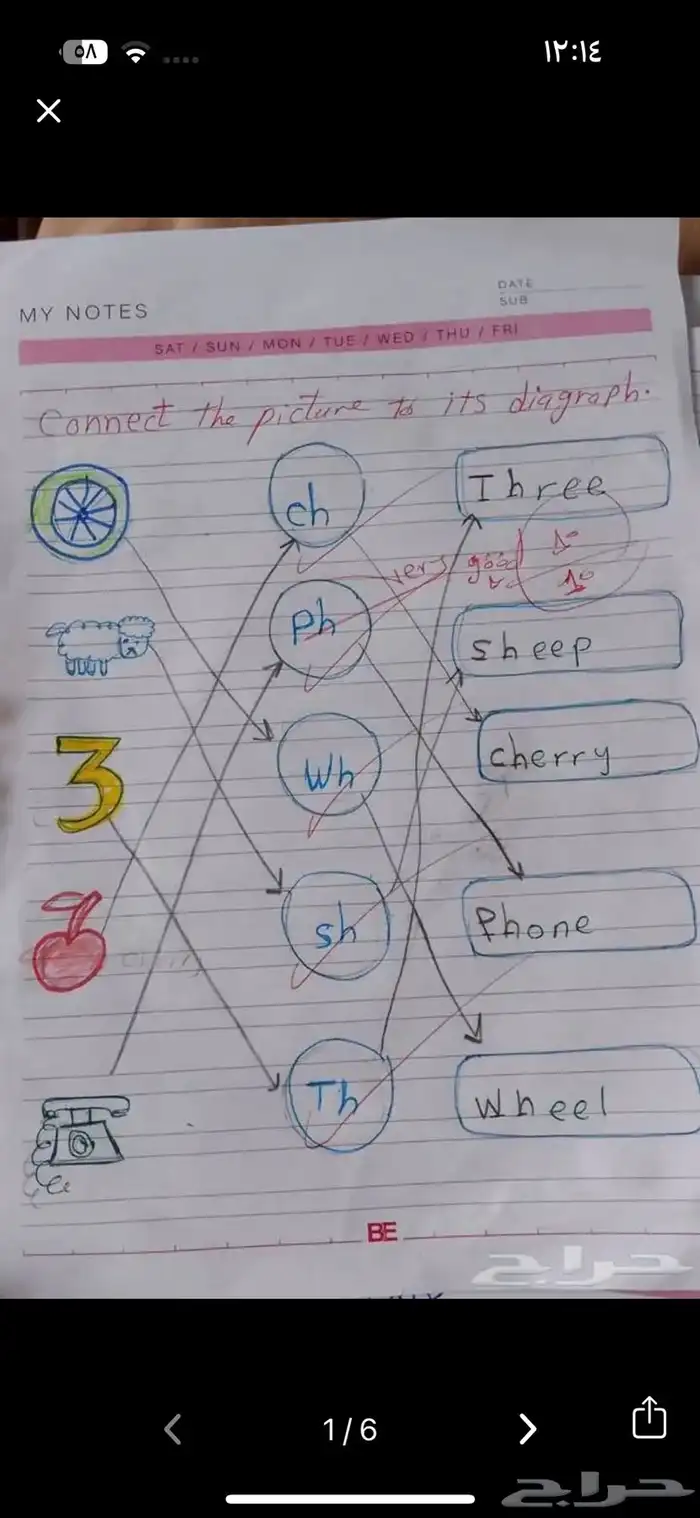 ٥٨
١٢:١٤
MY NOTES
DATE
SUB
SAT / SUN / MON / TUE / WED / THU / FRI
Connect the picture to its diagraph.
ch
Three
very good
10
10
Ph
sheep
Wh
cherry
sh
Phone
Th
Wheel
BE
حراج
1/6
حراج